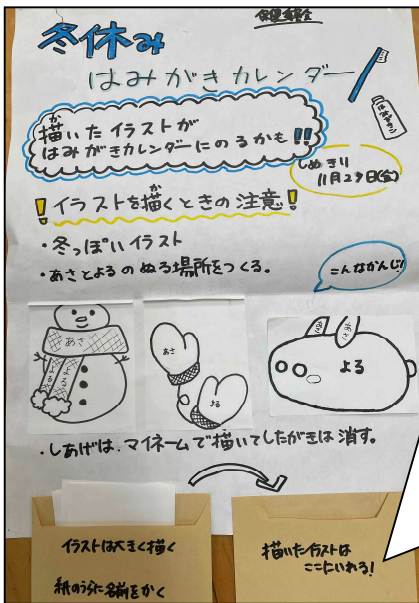 保健委員会
冬休み
はみがきカレンダー
はみがきこ
描いたイラストが
か
はみがきカレンダーにのるかも!!
しめきり
11月29日(金)
!イラストを描くときの注意!
か
・冬っぽいイラスト
・あさとよるのぬる場所をつくる。
こんなかんじ!
あさ
よる
よる
あさ
よる
あさ
あさ
よる
・しあげは、マイネームで描いてしたがきは消す。
イラストは大きく描く
紙のうらに名前をかく
描いたイラストは
ここにいれる!